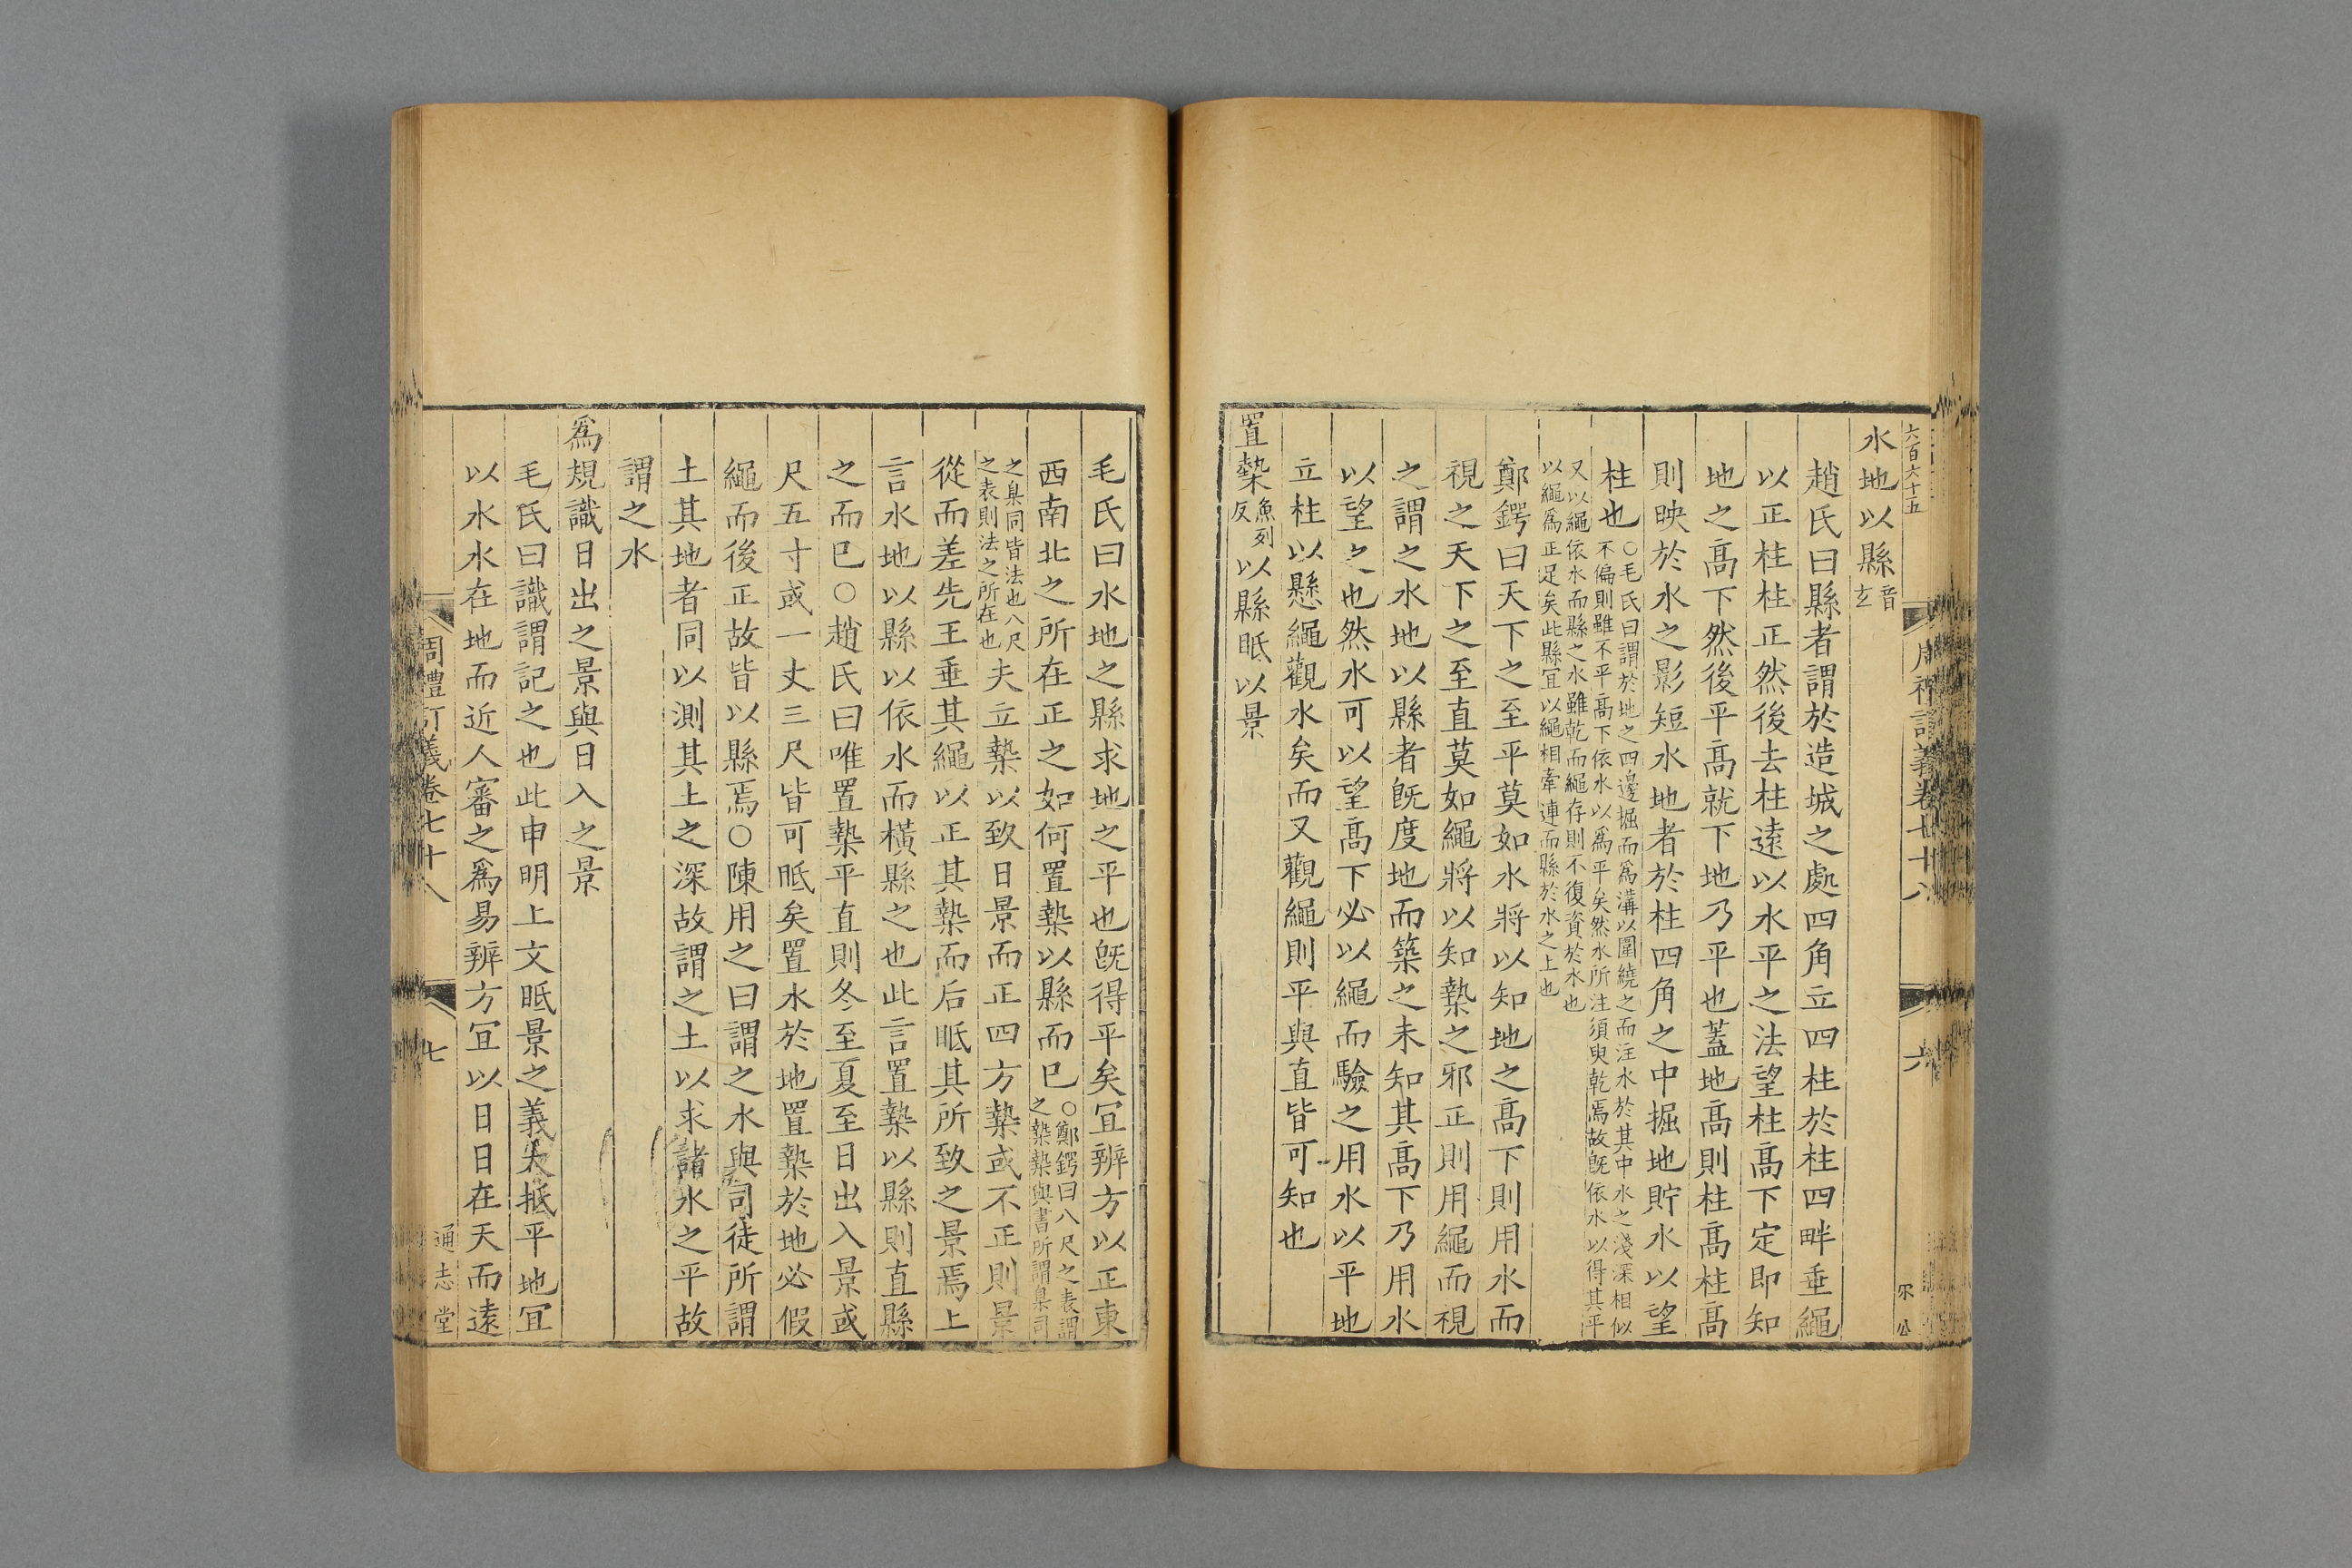 六百六十五
水地以縣音玄
趙氏曰縣者謂於造城之處四角立四柱於柱四畔垂繩
以正柱柱正然後去柱遠以水平之法望柱髙下定即知
地之髙下然後平髙就下地乃平也蓋地髙則柱髙柱髙
則映於水之影短水地者於柱四角之中掘地貯水以望
柱也○毛氏曰謂於地之四邊掘而爲溝以圍繞之而注水於其中水之淺深相似
不偏則雖不平髙下依水以爲平矣然水所注須臾乾焉故旣依水以得其平
又以繩依水而縣之水雖乾而繩存則不復資於水也
以繩爲正足矣此縣冝以繩相牽連而縣於水之上也
鄭鍔曰天下之至平莫如水將以知地之髙下則用水而
視之天下之至直莫如繩將以知槷之邪正則用繩而視
之謂之水地以縣者旣度地而築之未知其髙下乃用水
以望之也然水可以望髙下必以繩而驗之用水以平地
立柱以懸繩觀水矣而又觀繩則平與直皆可知也
置槷魚列反以縣眡以景
周禮訂義卷七十八
六
毛氏曰水地之縣求地之平也旣得平矣冝辨方以正東
西南北之所在正之如何置槷以縣而已○鄭鍔曰八尺之表謂
之槷槷與書所謂臬司
之臬同皆法也八尺
之表則法之所在也夫立槷以致日景而正四方槷或不正則景
從而差先王垂其繩以正其槷而后眡其所致之景焉上
言水地以縣以依水而橫縣之也此言置槷以縣則直縣
之而已○趙氏曰唯置槷平直則冬至夏至日出入景或
尺五寸或一丈三尺皆可眡矣置水於地置槷於地必假
繩而後正故皆以縣焉○陳用之曰謂之水與司徒所謂
土其地者同以測其土之深故謂之土以求諸水之平故
謂之水
爲規識日出之景與日入之景
毛氏曰識謂記之也此申明上文眡景之義大抵平地冝
以水水在地而近人審之爲易辨方冝以日日在天而遠
周禮訂義卷七十八
七
通志堂